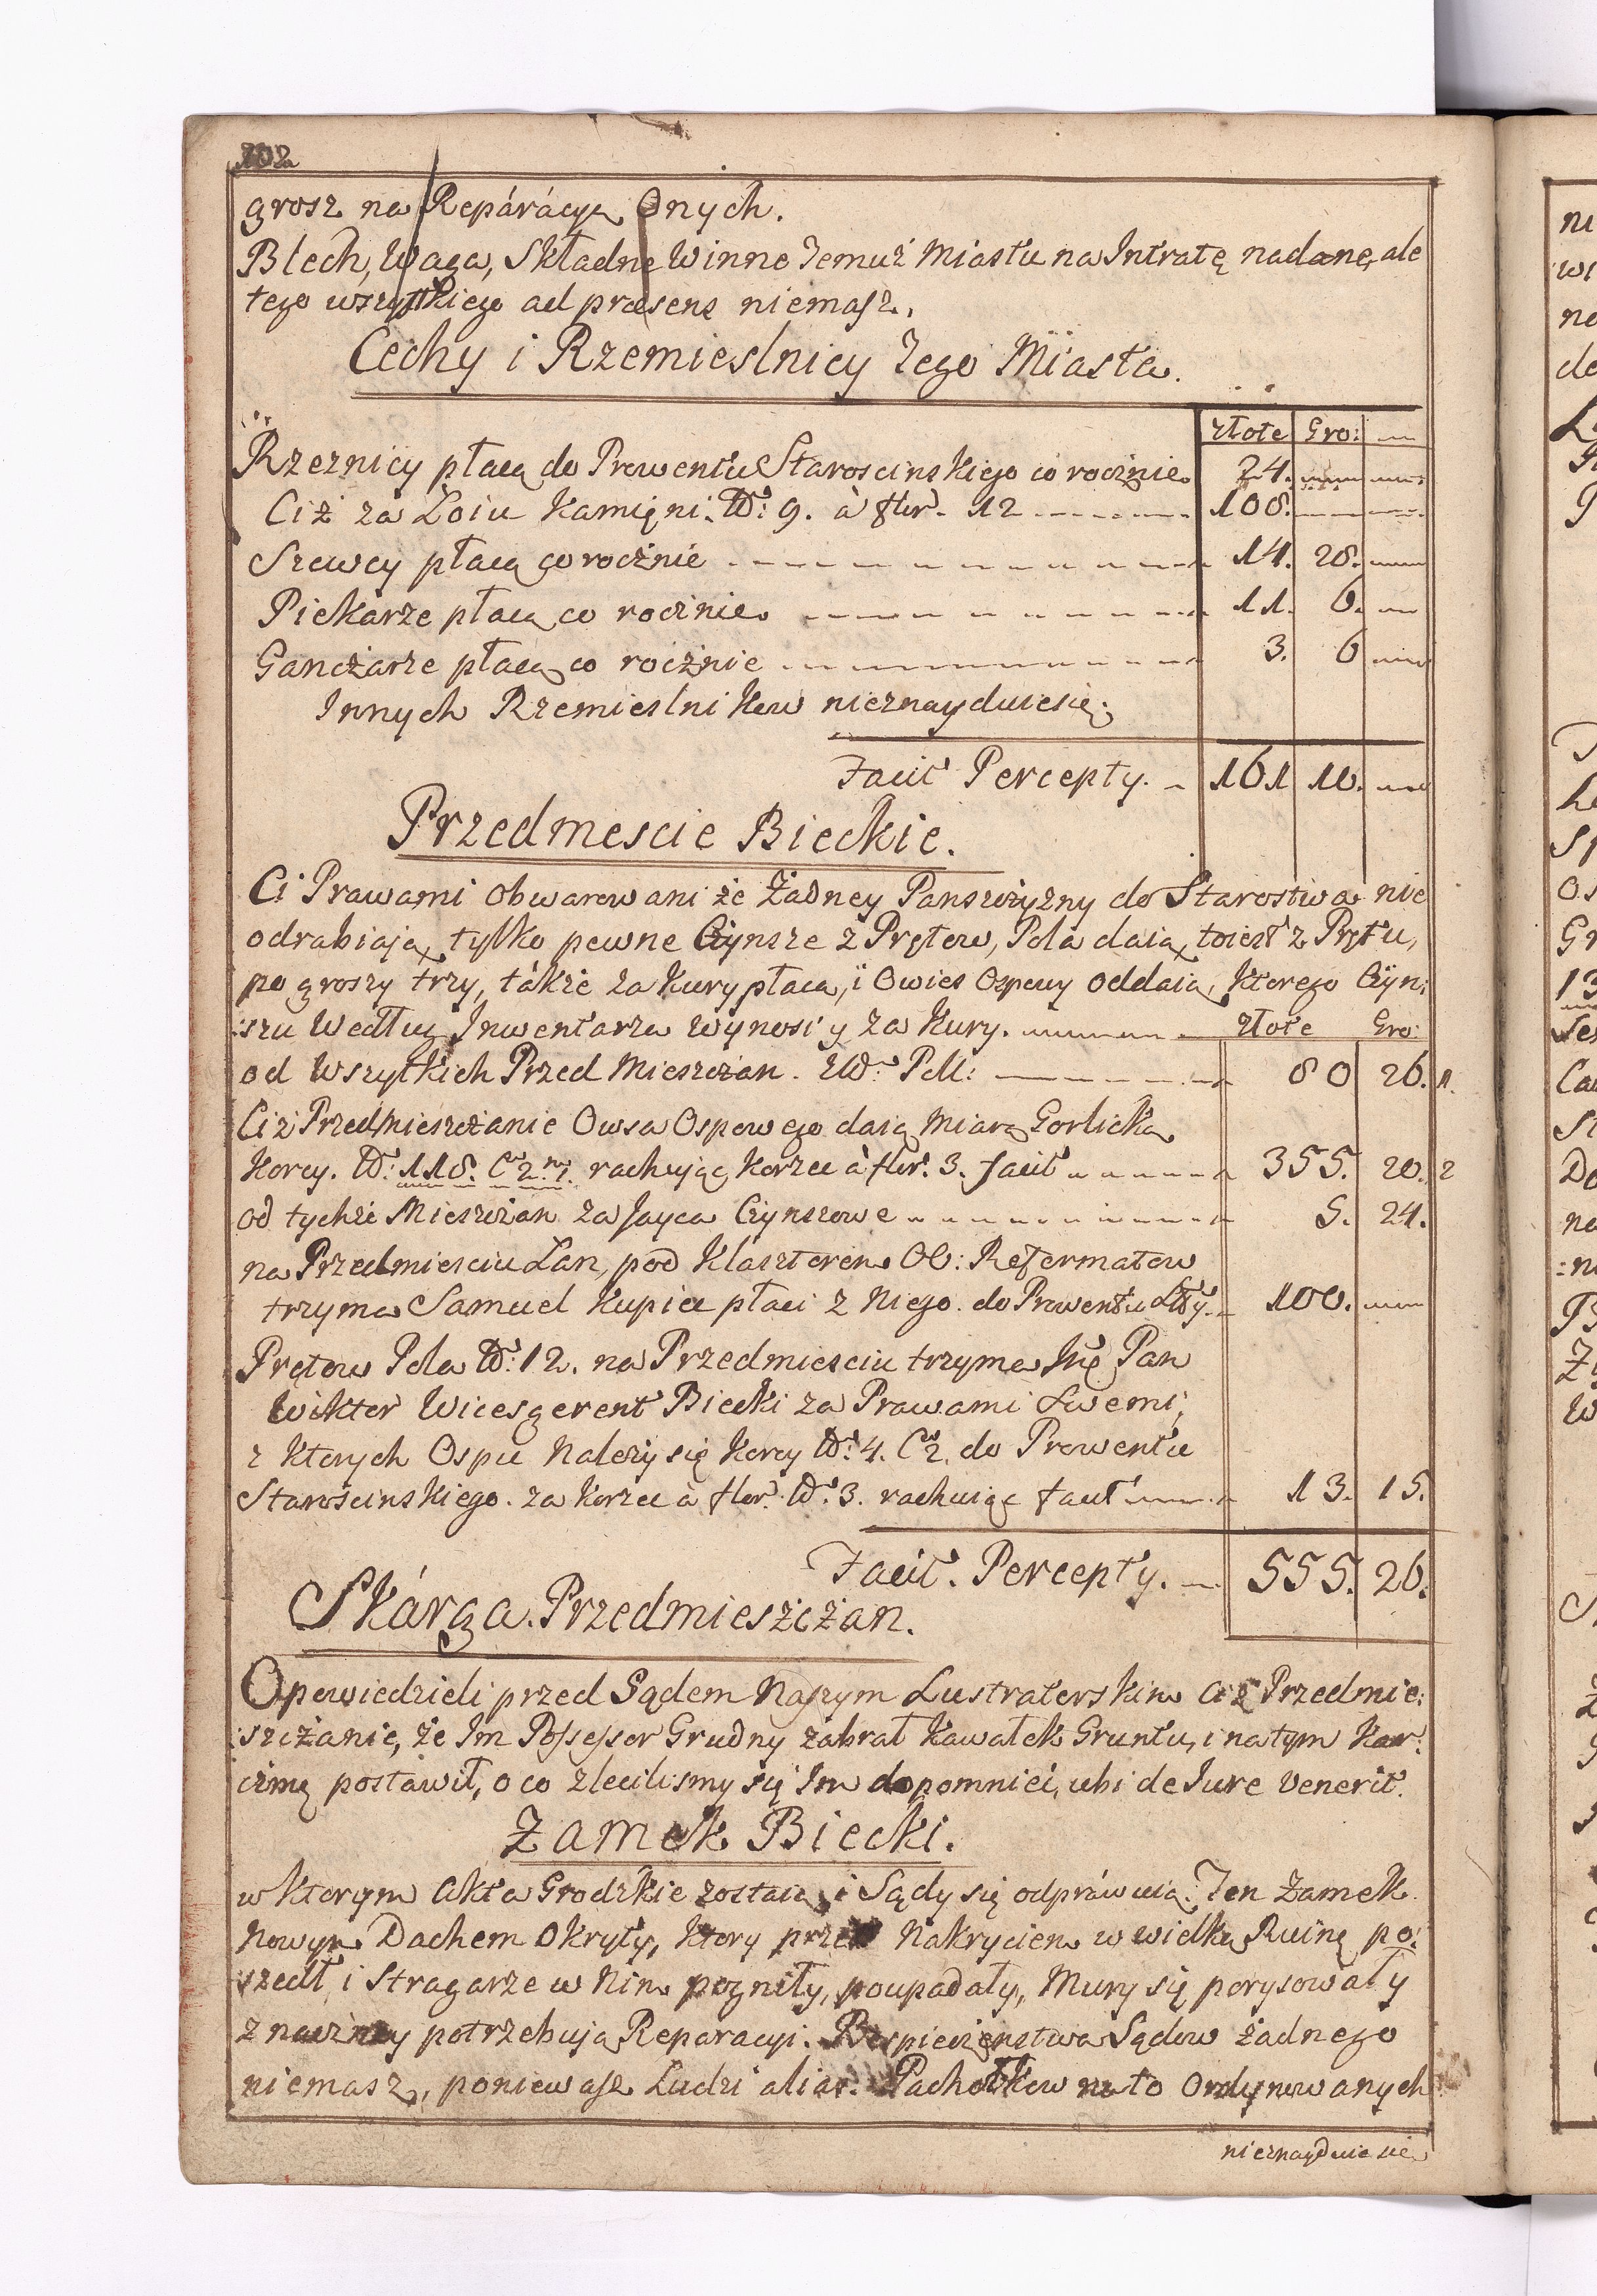 202
grosz na Repárácyą Onych.
Blech, Waga, Składne Winne Temuż Miastu na Intratę nadane, ale
tego wszystkiego ad præsens niemasz.
Cechy i Rzemieslnicy Tego Miasta.
złote Gro:
Rzeznicy płacą do Prowentu Staroscinskiego co rocznie 24.
Ciż za Łoiu Kamięni. No: 9. à flor. 12 108.
Szewcy płacą co rocznie 14. 28.
Piekarze płacą co rocznie 11. 6.
Ganczarze płacą co rocznie 3. 6
Innych Rzemieslnikow nieznayduiesię.
Facit Percepty. 161 10.
Przedmescie Bieckie.
Ci Prawami obwarowani że Żadney Panszczyzny do Starostwa nie
odrabiaią, tylko pewne Czynsze z Prętow, Pola daią, toiest z Prętu,
po groszy trzy, tákże za Kury płacą, i Owies Ospowy oddaią, Ktorego Czyn:
:szu Według Inwentarza wynosi y za Kury. złote Gro:
od Wszytkich Przed Mieszczan. 80 26. 1.
Ciż Przedmieszczanie Owsa Ospowego daią Miarą Gorlicką
Korcy. No: 118. rachuiąc Korzec à flor. 3. facit 355. 20. 2
od tychże Mieszczan za Jayca Czynszowe 5. 24.
na Przedmiesciu Łan, pod Klasztorem OO: Reformatow
trzyma Samuel Kupiec płaci z Niego do Prowentu 100.
Prętow Pola No: 12. na Przedmiesciu trzyma Pan
Wiktor Wicesgerent Biecki za Prawami Swemi,
z Ktorych Ospu Należy się Korcy No: 4. do Prowentu
Staroscinskiego. za Korzec à flor. No: 3. rachuiąc facit 13. 15.
Facit. Percepty. 555. 26.
Skárga Przedmieszczan.
Opowiedzieli przed Sądem Naszym Lustratorskim Ciż Przedmie:
:szczanie, że Im Possessor Grudny zabrał Kawałek Gruntu, i na tym Kar:
czmę postawił, o co zleciliśmy się Im dopomnieć, ubi de Iure venerit.
Zamek Biecki.
w Ktorym Akta Grodzkie zostaią i Sądy się odpráwuią. Ten Zamek
Nowym Dachem Okryty, Ktory przed Nakryciem w wielką Ruinę po:
szedł, i Stragarze w Nim pogniły, poupadały, Mury się porysowały
znaczney potrzebuią Reparacyi. Bespieczenstwa Sądow żadnego
niemasz, poniewasz Ludzi alias. Pachołkow na to Ordynowanych
nieznayduie się